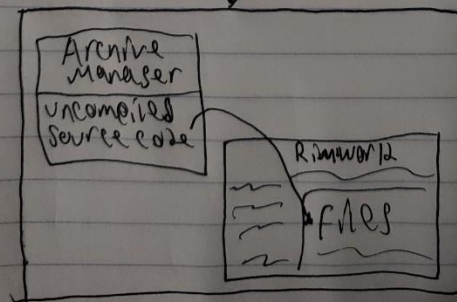 Archive
Manager
uncompiled
source code
Rimworld
Files